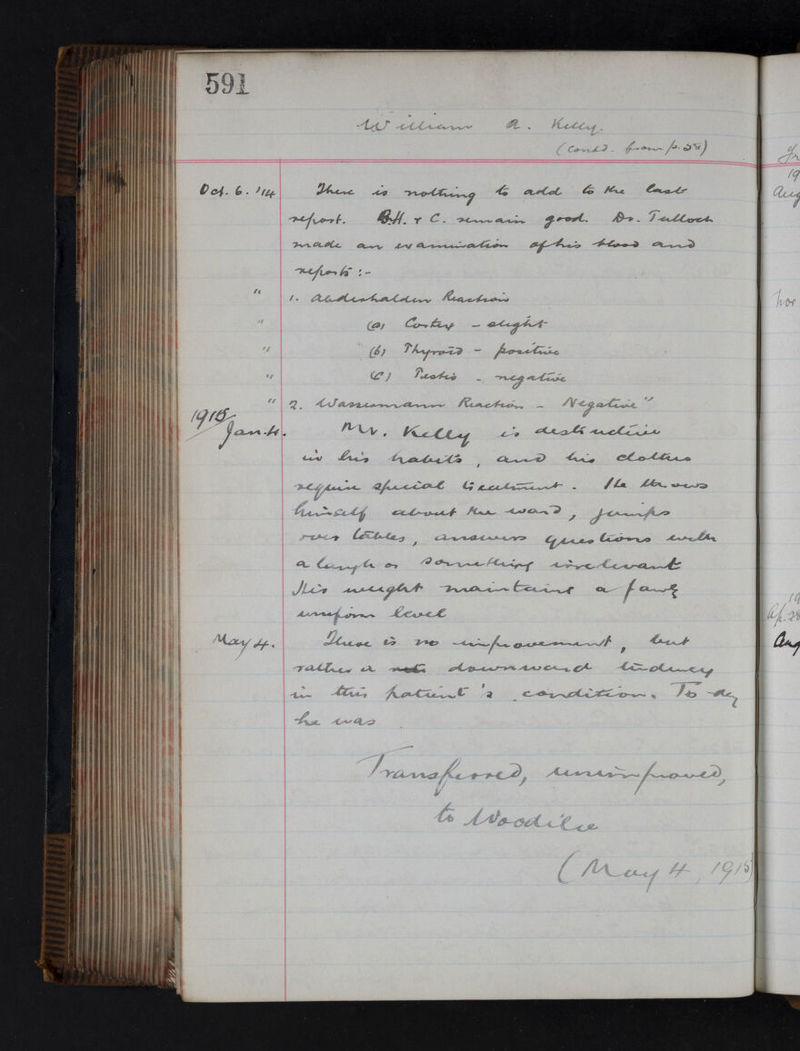 591
William A. Kelly.
(Contd. from p.
Oct. 6. '14 There is nothing to add to the last
report. B.H. & C. remain good. Dr. Tulloch
made an examination of his blood and
reports :-
" 1. Abderhalden Reaction
" (a) Cortex - slight
" (b) Thyroid - positive
" (c) Testis - negative
" 2. Wassermann Reaction - Negative"
1915
Jan. 4. Mr. Kelly is destructive
in his habits, and his clothes
require special treatment. He throws
himself about the ward, jumps
over tables, answers questions with
a laugh or something irrelevant
His weight maintains a fairly
uniform level
May 4. There is no improvement, but
rather a downward tendency
in this patient's condition. To-day
he was
Transferred, unimproved,
to Woodilee
(May 4, 1915)
Aug
Nov
Ap. 28
Aug